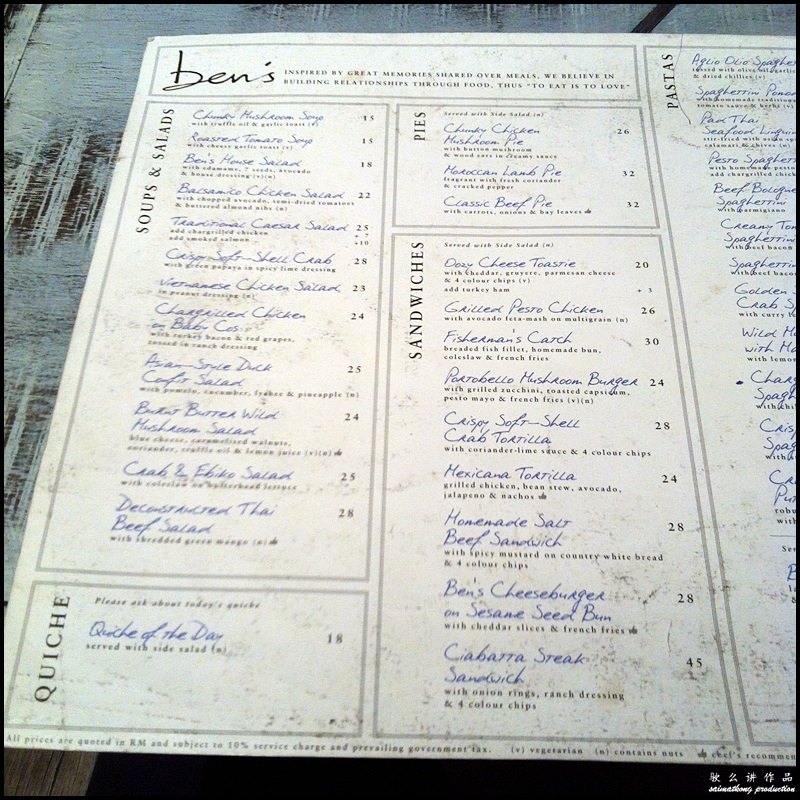 ben's
INSPIRED BY GREAT MEMORIES SHARED OVER MEALS, WE BELIEVE IN
BUILDING RELATIONSHIPS THROUGH FOOD, THUS "TO EAT IS TO LOVE"
SOUPS & SALADS
Chunky Mushroom Soup 15
with truffle oil & garlic toasts (v)
Roasted Tomato Soup 15
with cheesy garlic toasts (v)
Ben's House Salad 18
with edamame, 7 seeds, avocado
& house dressing (v)(n)
Balsamico Chicken Salad 22
with chopped avocado, semi-dried tomatoes
& buttered almond nibs (n)
Traditional Caesar Salad 25
add chargrilled chicken + 7
add smoked salmon +10
Crispy Soft-Shell Crab 28
with green papaya in spicy lime dressing
Vietnamese Chicken Salad 23
in peanut dressing (n)
Chargrilled Chicken 24
on Baby Cos
with turkey bacon & red grapes,
tossed in ranch dressing
Asian-Style Duck 25
Confit Salad
with pomelo, cucumber, lychee & pineapple (n)
Burnt Butter Wild 24
Mushroom Salad
blue cheese, caramelised walnuts,
coriander, truffle oil & lemon juice (v)(n)
Crab & Ebiko Salad 25
with coleslaw on butterhead lettuce
Deconstructed Thai 28
Beef Salad
with shredded green mango (n)
QUICHE
Please ask about today's quiche
Quiche of the Day 18
served with side salad (n)
PIES
Served with Side Salad (n)
Chunky Chicken 26
Mushroom Pie
with button mushroom
& wood ears in creamy sauce
Moroccan Lamb Pie 32
fragrant with fresh coriander
& cracked pepper
Classic Beef Pie 32
with carrots, onions & bay leaves
SANDWICHES
Served with Side Salad (n)
Oozy Cheese Toastie 20
with cheddar, gruyere, parmesan cheese
& 4 colour chips (v)
add turkey ham + 3
Grilled Pesto Chicken 26
with avocado feta-mash on multigrain (n)
Fisherman's Catch 30
breaded fish fillet, homemade bun,
coleslaw & french fries
Portobello Mushroom Burger 24
with grilled zucchini, toasted capsicum,
pesto mayo & french fries (v)(n)
Crispy Soft-Shell 28
Crab Tortilla
with coriander-lime sauce & 4 colour chips
Mexicana Tortilla 24
grilled chicken, bean stew, avocado,
jalapeno & nachos
Homemade Salt 28
Beef Sandwich
with spicy mustard on country white bread
& 4 colour chips
Ben's Cheeseburger 28
on Sesame Seed Bun
with cheddar slices & french fries
Ciabatta Steak 45
Sandwich
with onion rings, ranch dressing
& 4 colour chips
PASTAS
Aglio Olio Spaghe
tossed with olive oil, garlic
& dried chillies (v)
Spaghettini Pomo
with homemade traditiona
tomato sauce & herbs (v)
Pad Thai
Seafood Linguin
stir-fried with asian sp
calamari & chives (n)
Pesto Spaghe
with homemade pest
add chargrilled chick
Beef Bologne
Spaghettini
with parmigiano
Creamy Ton
Spaghettini
with beef bacon
Spaghettin
with beef bacon
Golden
Crab S
with curry
Wild M
with Ma
with lemon
Charg
Spagh
Crisp
Spag
All prices are quoted in RM and subject to 10% service charge and prevailing government tax. (v) vegetarian (n) contains nuts chef's recommen
驮么讲作品
saimatkong production